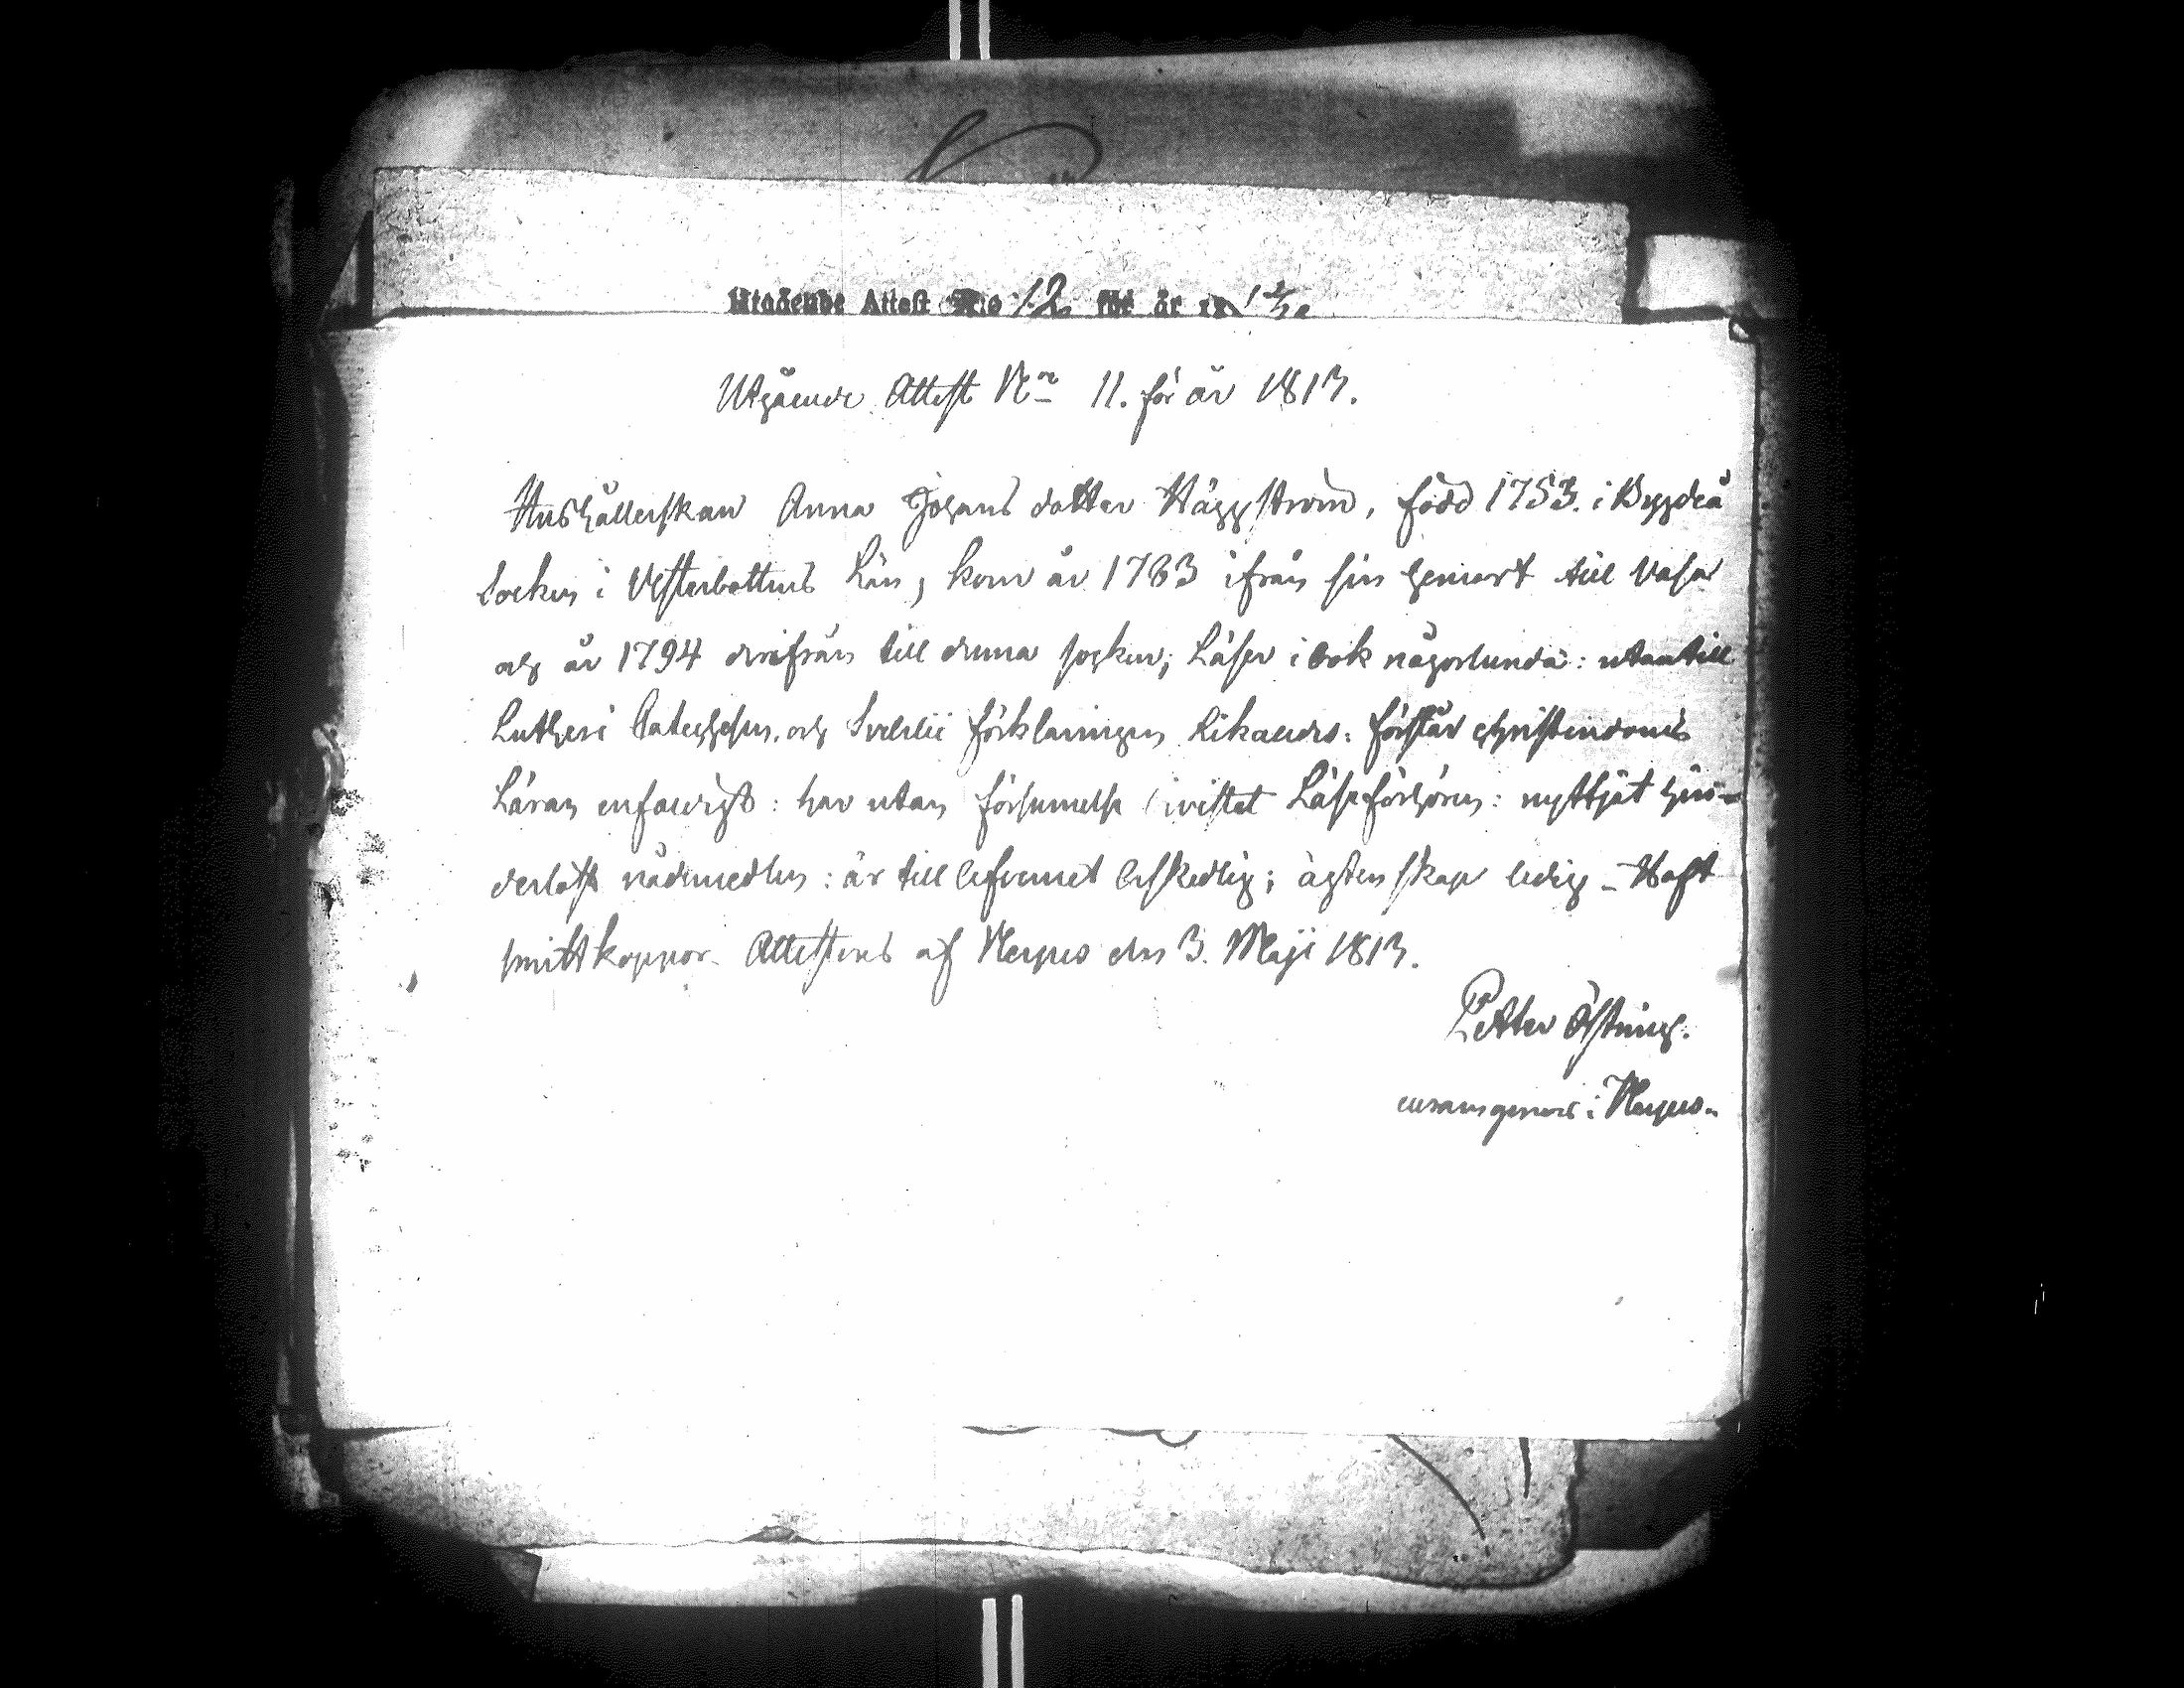 Utgående Attest No 12 för år 18
Utgående Attest No 11. för år 1813.
Hushållerskan Anna Johans dotter Häggström, född 1753. i Bygdeå
Socken i Vesterbottens Län, kom år 1783 ifrån sin hemort till Vasa
och år 1794 derifrån till denna socken; Läser i bok någorlunda: utantill
Lutheri Catechesen, och Svebilii förklaringen likaledes. förstår christendoms
Läran enfaldigt: har utan försummelse bivistat Läseförhören: nyttjat hin-
derlöst nådemedlen: är till lefvernet beskedlig; ägtenskap ledig - Haft
smittkoppor. Attesteras af Nerpes den 3. Maji 1813.
Petter Östring.
i Nerpes.